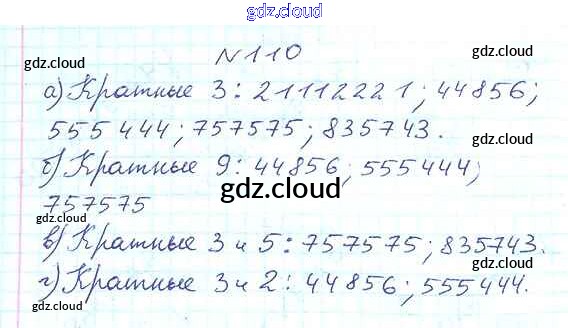 gdz.cloud
gdz.cloud
№110
gdz.cloud
а) Кратные 3: 2111221; 44856;
gdz.cloud
555444; 757575; 835743.
gdz.cloud
б) Кратные 9: 44856; 555444;
gdz.cloud
757575
в) Кратные 3 и 5: 757575; 835743.
gdz.cloud
gdz.cloud
г) Кратные 3 и 2: 44856; 555444.
gdz.cloud
gdz.cloud